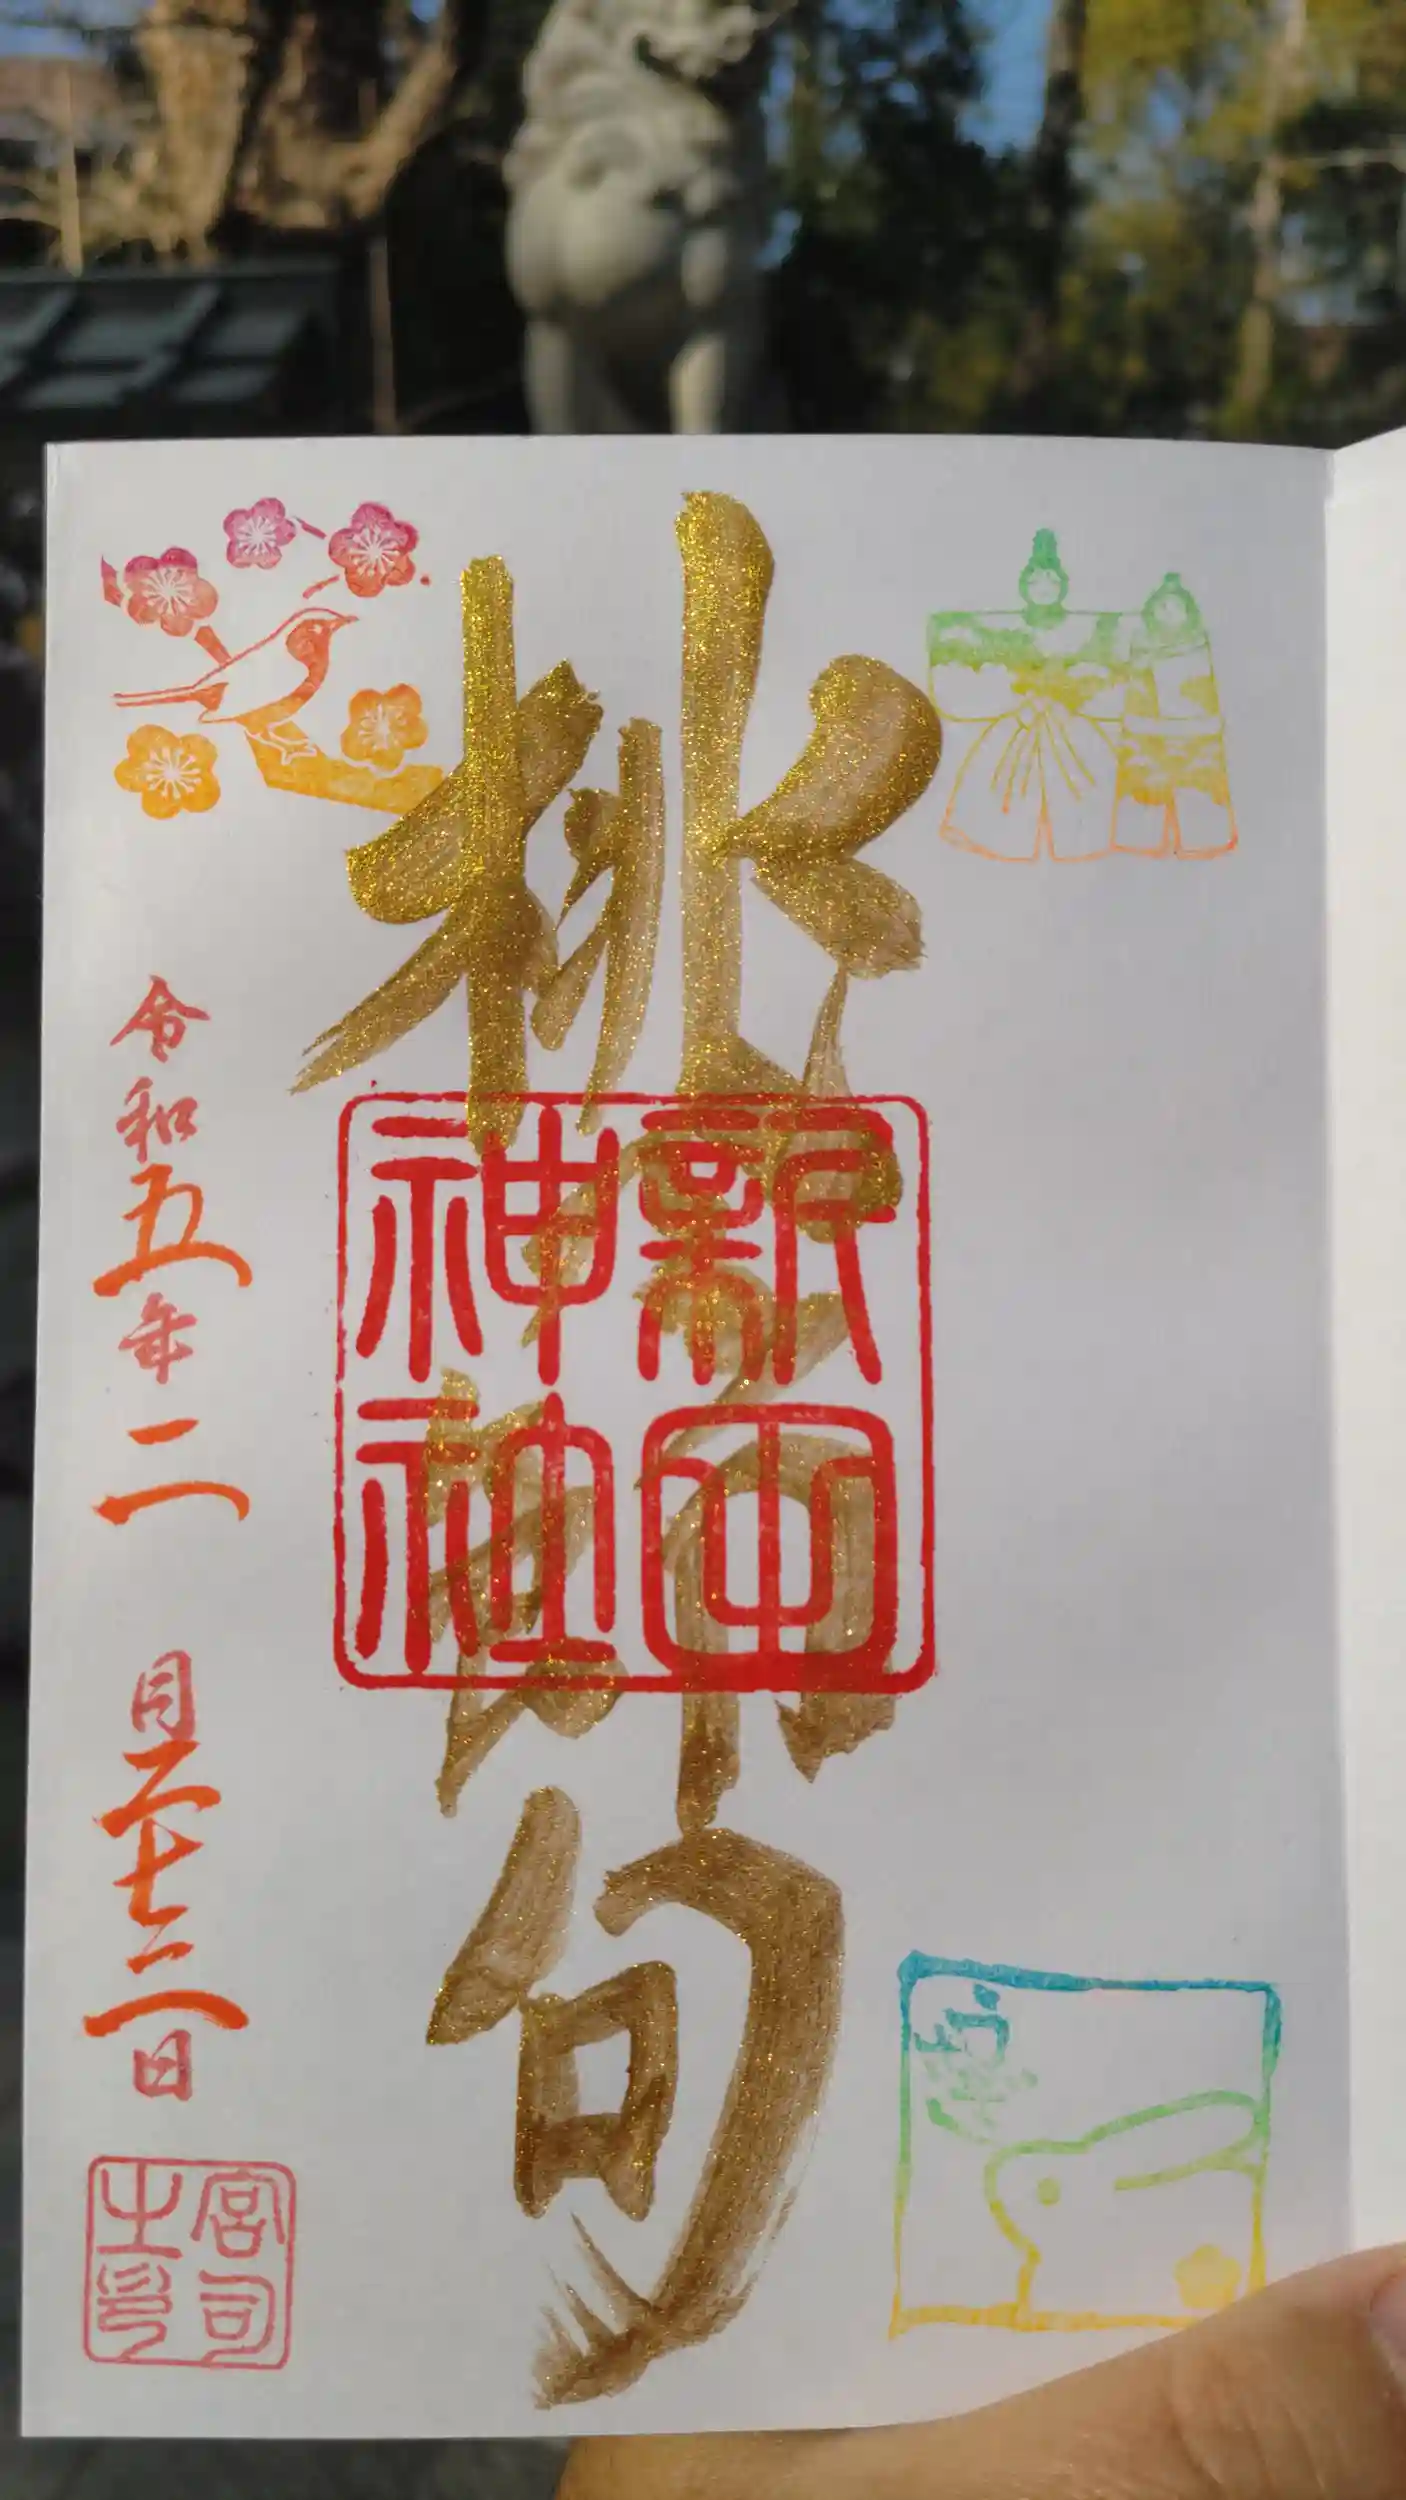 桃節句
新田
神社
令和五年二月二十二日
宮司
之印